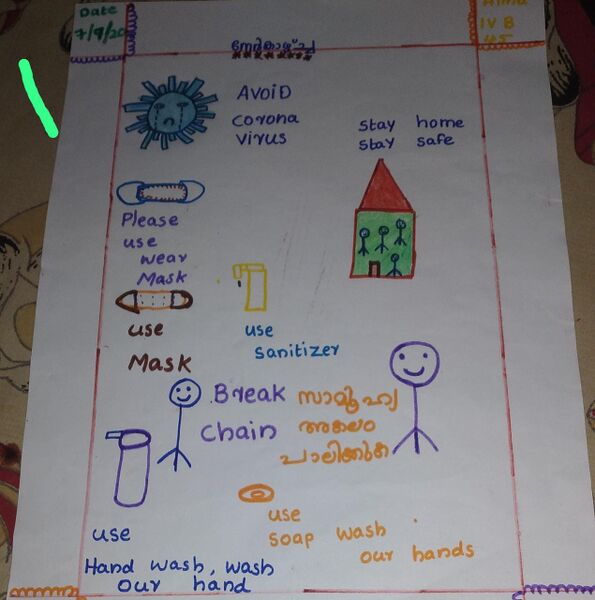 Date
IV B
45
നേർകാഴ്ച
AVOID
corona
virus
stay home
stay safe
Please
use
wear
Mask
use
Mask
use
sanitizer
Break
Chain
സാമൂഹ്യ
അകലം
പാലിക്കുക
use
Hand wash, wash
our hand
use
soap wash
our hands